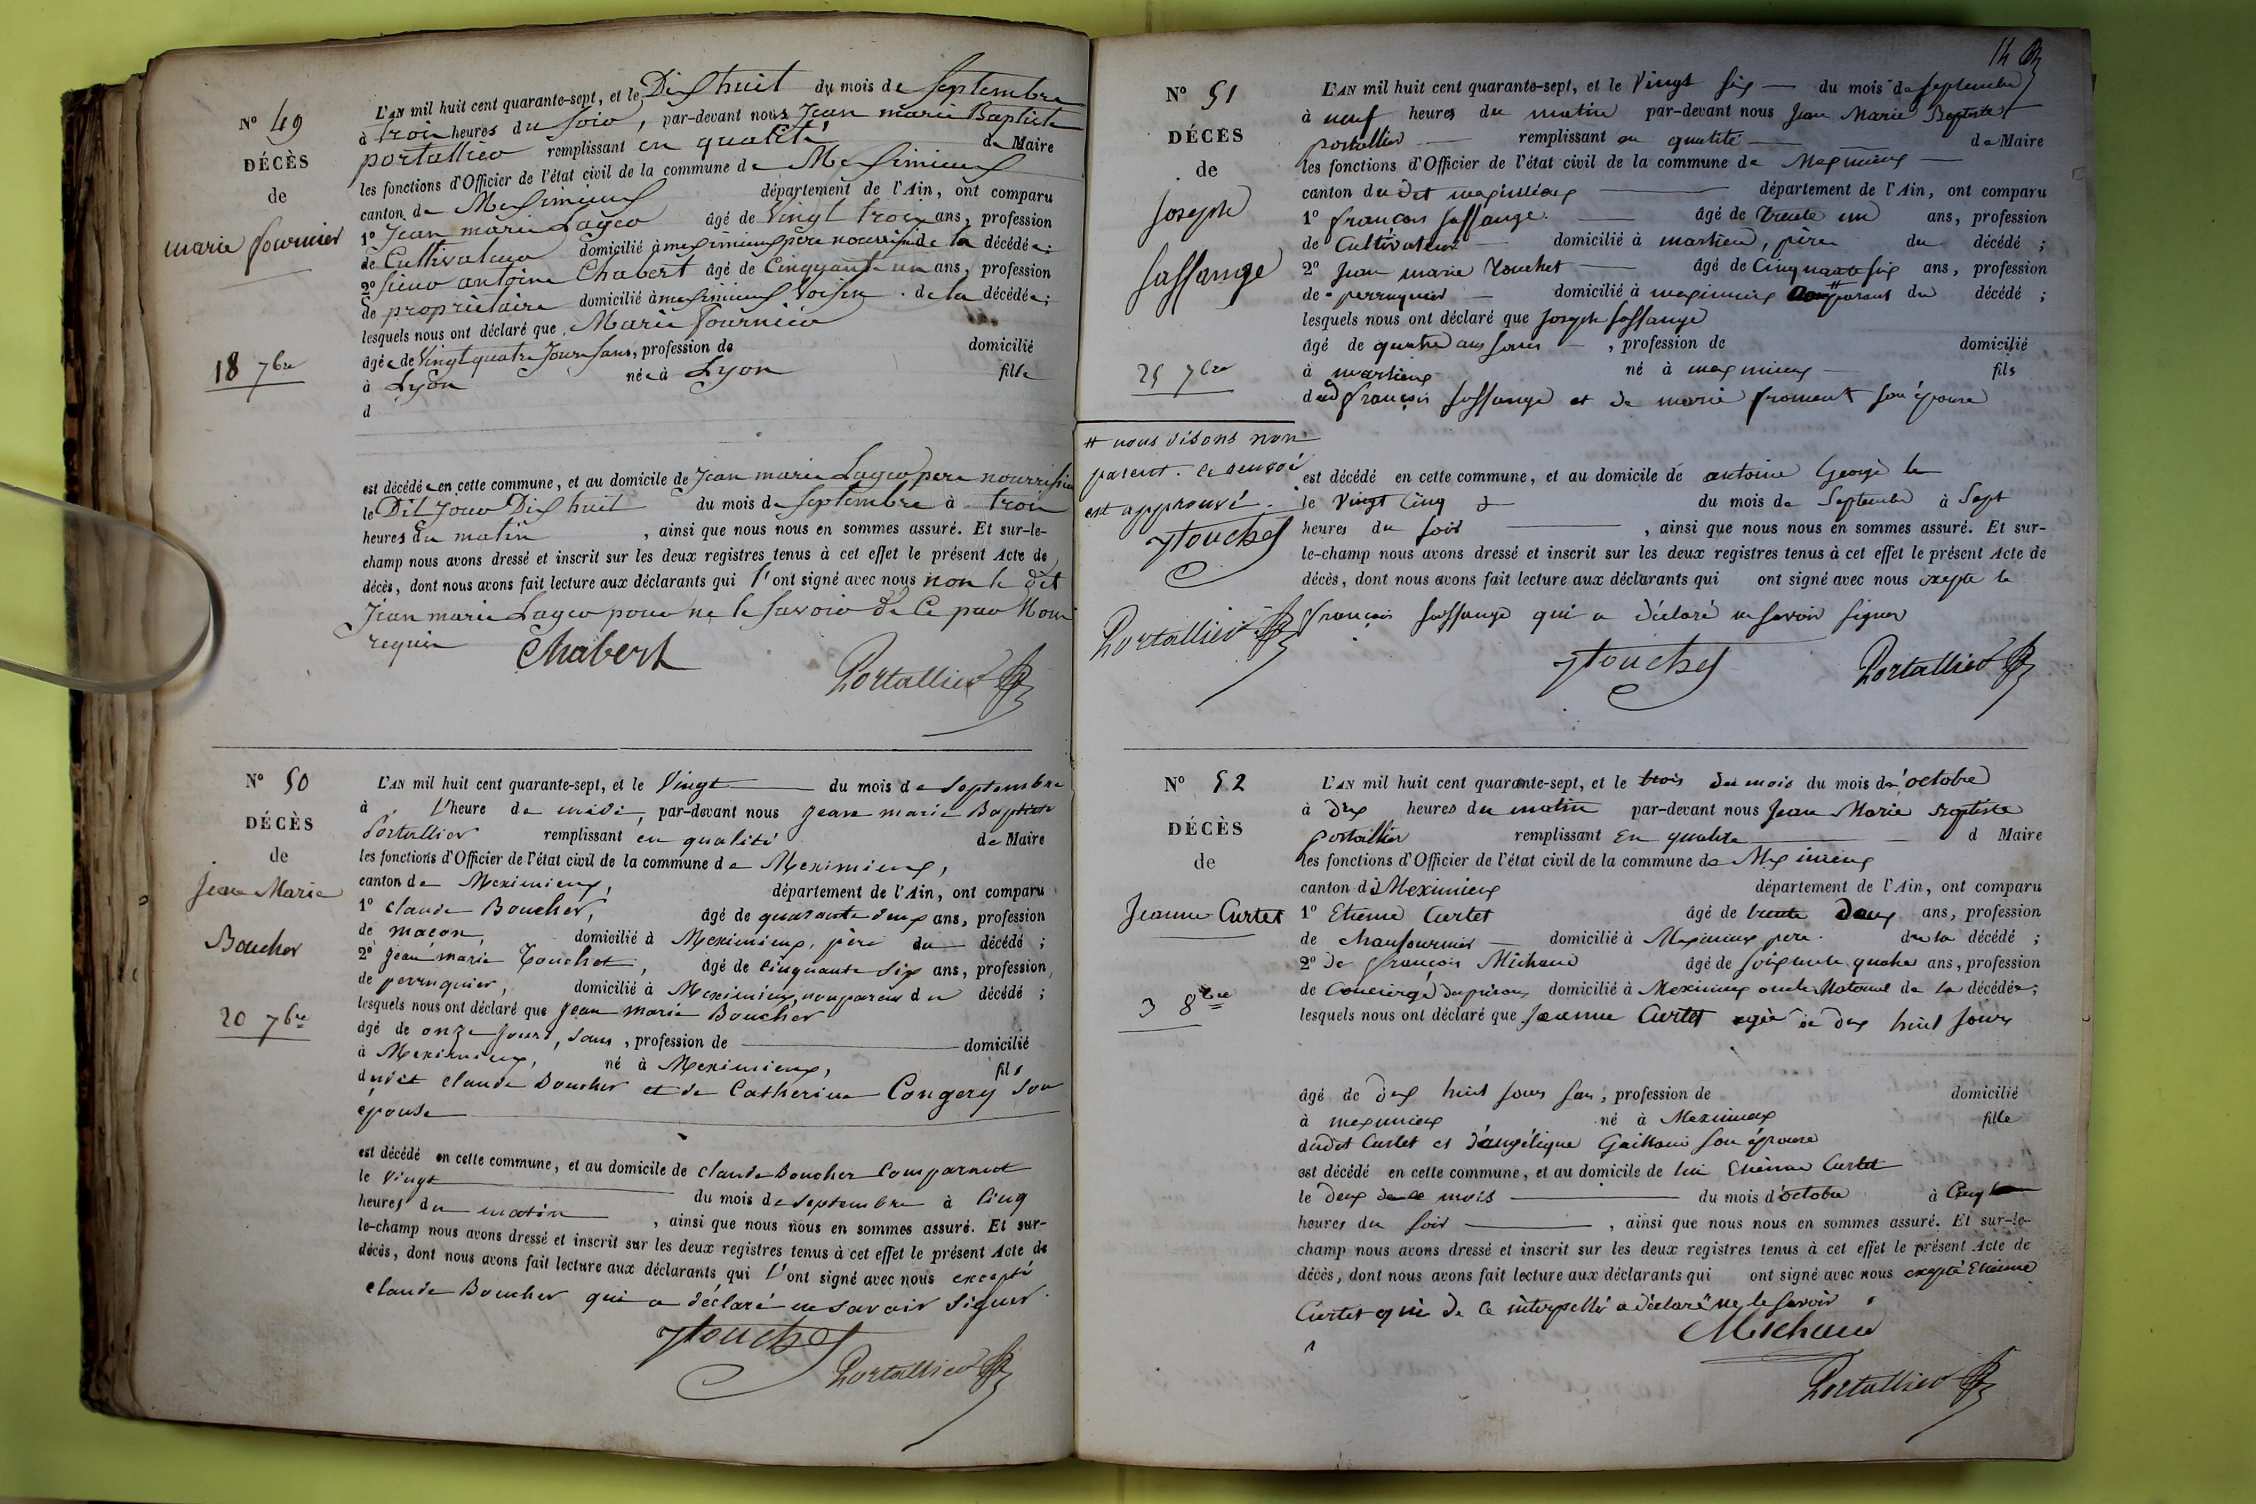 N° 49
DÉCÈS
de
marie fournier
18 7bre
L'AN mil huit cent quarante-sept, et le Dix huit du mois de Septembre
à trois heures du soir, par-devant nous Jean marie Baptiste
portallier remplissant en qualité de Maire
les fonctions d'Officier de l'état civil de la commune de Meximieux
canton de Meximieux département de l'Ain, ont comparu
1° Jean marie Lager âgé de Vingt trois ans, profession
de Cultivateur domicilié à meximieux père nourrisié de la décédée;
2° Sieur antoine Chabert âgé de Cinquante un ans, profession
de propriétaire domicilié à meximieux Voisin de la décédée;
lesquels nous ont déclaré que Marie fournier
âgée de Vingt quatre Jours sans, profession de domicilié
à Lyon née à Lyon fille
d
est décédée en cette commune, et au domicile de Jean marie Lager père nourrisié
le Dit Jour Dix huit du mois de Septembre à trois
heures du matin, ainsi que nous nous en sommes assuré. Et sur-le-
champ nous avons dressé et inscrit sur les deux registres tenus à cet effet le présent Acte de
décès, dont nous avons fait lecture aux déclarants qui l'ont signé avec nous non le dit
Jean marie Lager pour ne le savoir de Ce par Nous
requis
Chabert
Portallier
N° 50
DÉCÈS
de
Jean Marie
Boucher
20 7bre
L'AN mil huit cent quarante-sept, et le Vingt du mois de Septembre
à l'heure de midi, par-devant nous Jean marie Baptiste
Portallier remplissant en qualité de Maire
les fonctions d'Officier de l'état civil de la commune de Meximieux,
canton de Meximieux, département de l'Ain, ont comparu
1° Claude Boucher, âgé de quarante deux ans, profession
de maçon, domicilié à Meximieux, père du décédé;
2° Jean marie Touchet, âgé de Cinquante Six ans, profession,
de perruquier, domicilié à Meximieux, non parent du décédé;
lesquels nous ont déclaré que Jean marie Boucher
âgé de onze jours, sans, profession de domicilié
à Meximieux, né à Meximieux, fils
dudit Claude Boucher et de Catherine Congery son
épouse
est décédé en cette commune, et au domicile de Claude Boucher Comparant
le Vingt du mois de Septembre à Cinq
heures du matin, ainsi que nous nous en sommes assuré. Et sur-
le-champ nous avons dressé et inscrit sur les deux registres tenus à cet effet le présent Acte de
décès, dont nous avons fait lecture aux déclarants qui l'ont signé avec nous excepté
Claude Boucher qui a déclaré ne savoir signer.
Touchet
Portallier
14
N° 51
DÉCÈS
de
Joseph
Saffange
25 7bre
# nous disons non
parent. Le renvoi
est approuvé.
Touchet
Portallier
L'AN mil huit cent quarante-sept, et le Vingt Six du mois de Septembre
à neuf heures du matin par-devant nous Jean Marie Baptiste
portallier remplissant en qualité de Maire
les fonctions d'Officier de l'état civil de la commune de Meximieux
canton du dit meximieux département de l'Ain, ont comparu
1° françois Saffange. âgé de trente un ans, profession
de Cultivateur domicilié à martieux, père du décédé;
2° Jean marie Touchet âgé de Cinquante six ans, profession
de perruquier domicilié à meximieux # parent du décédé;
lesquels nous ont déclaré que Joseph Saffange
âgé de quatre ans sans, profession de domicilié
à martieux né à meximieux fils
dud françois Saffange et de marie froment son épouse
est décédé en cette commune, et au domicile de antoine George le
le Vingt Cinq du mois de Septembre à Sept
heures du soir, ainsi que nous nous en sommes assuré. Et sur-
le-champ nous avons dressé et inscrit sur les deux registres tenus à cet effet le présent Acte de
décès, dont nous avons fait lecture aux déclarants qui ont signé avec nous exepté le
françois Saffange qui a déclaré ne savoir signer
Touchet
Portallier
N° 52
DÉCÈS
de
Jeanne Curtet
3 8bre
L'AN mil huit cent quarante-sept, et le trois du mois du mois d'octobre
à dix heures du matin par-devant nous Jean Marie Baptiste
portallier remplissant En qualité d Maire
les fonctions d'Officier de l'état civil de la commune de Meximieux
canton de Meximieux département de l'Ain, ont comparu
1° Etienne Curtet âgé de trente Deux ans, profession
de chaufournier domicilié à Meximieux père de la décédé;
2° de françois Michaud âgé de soixante quatre ans, profession
de Concierge des prisons domicilié à Meximieux oncle Maternel de la décédée;
lesquels nous ont déclaré que Jeanne Curtet agée de dix huit Jours
âgé de dix huit Jours san, profession de domicilié
à meximieux né à Meximieux fille
dudit Curtet et d'angélique son épouse
est décédé en cette commune, et au domicile de lui Etienne Curtet
le deux de ce mois du mois d'octobre à Cinq
heures du soir, ainsi que nous nous en sommes assuré. Et sur-le-
champ nous avons dressé et inscrit sur les deux registres tenus à cet effet le présent Acte de
décès, dont nous avons fait lecture aux déclarants qui ont signé avec nous exepté Etienne
Curtet qui de Ce interpellé a déclaré ne le savoir
Michaud
Portallier